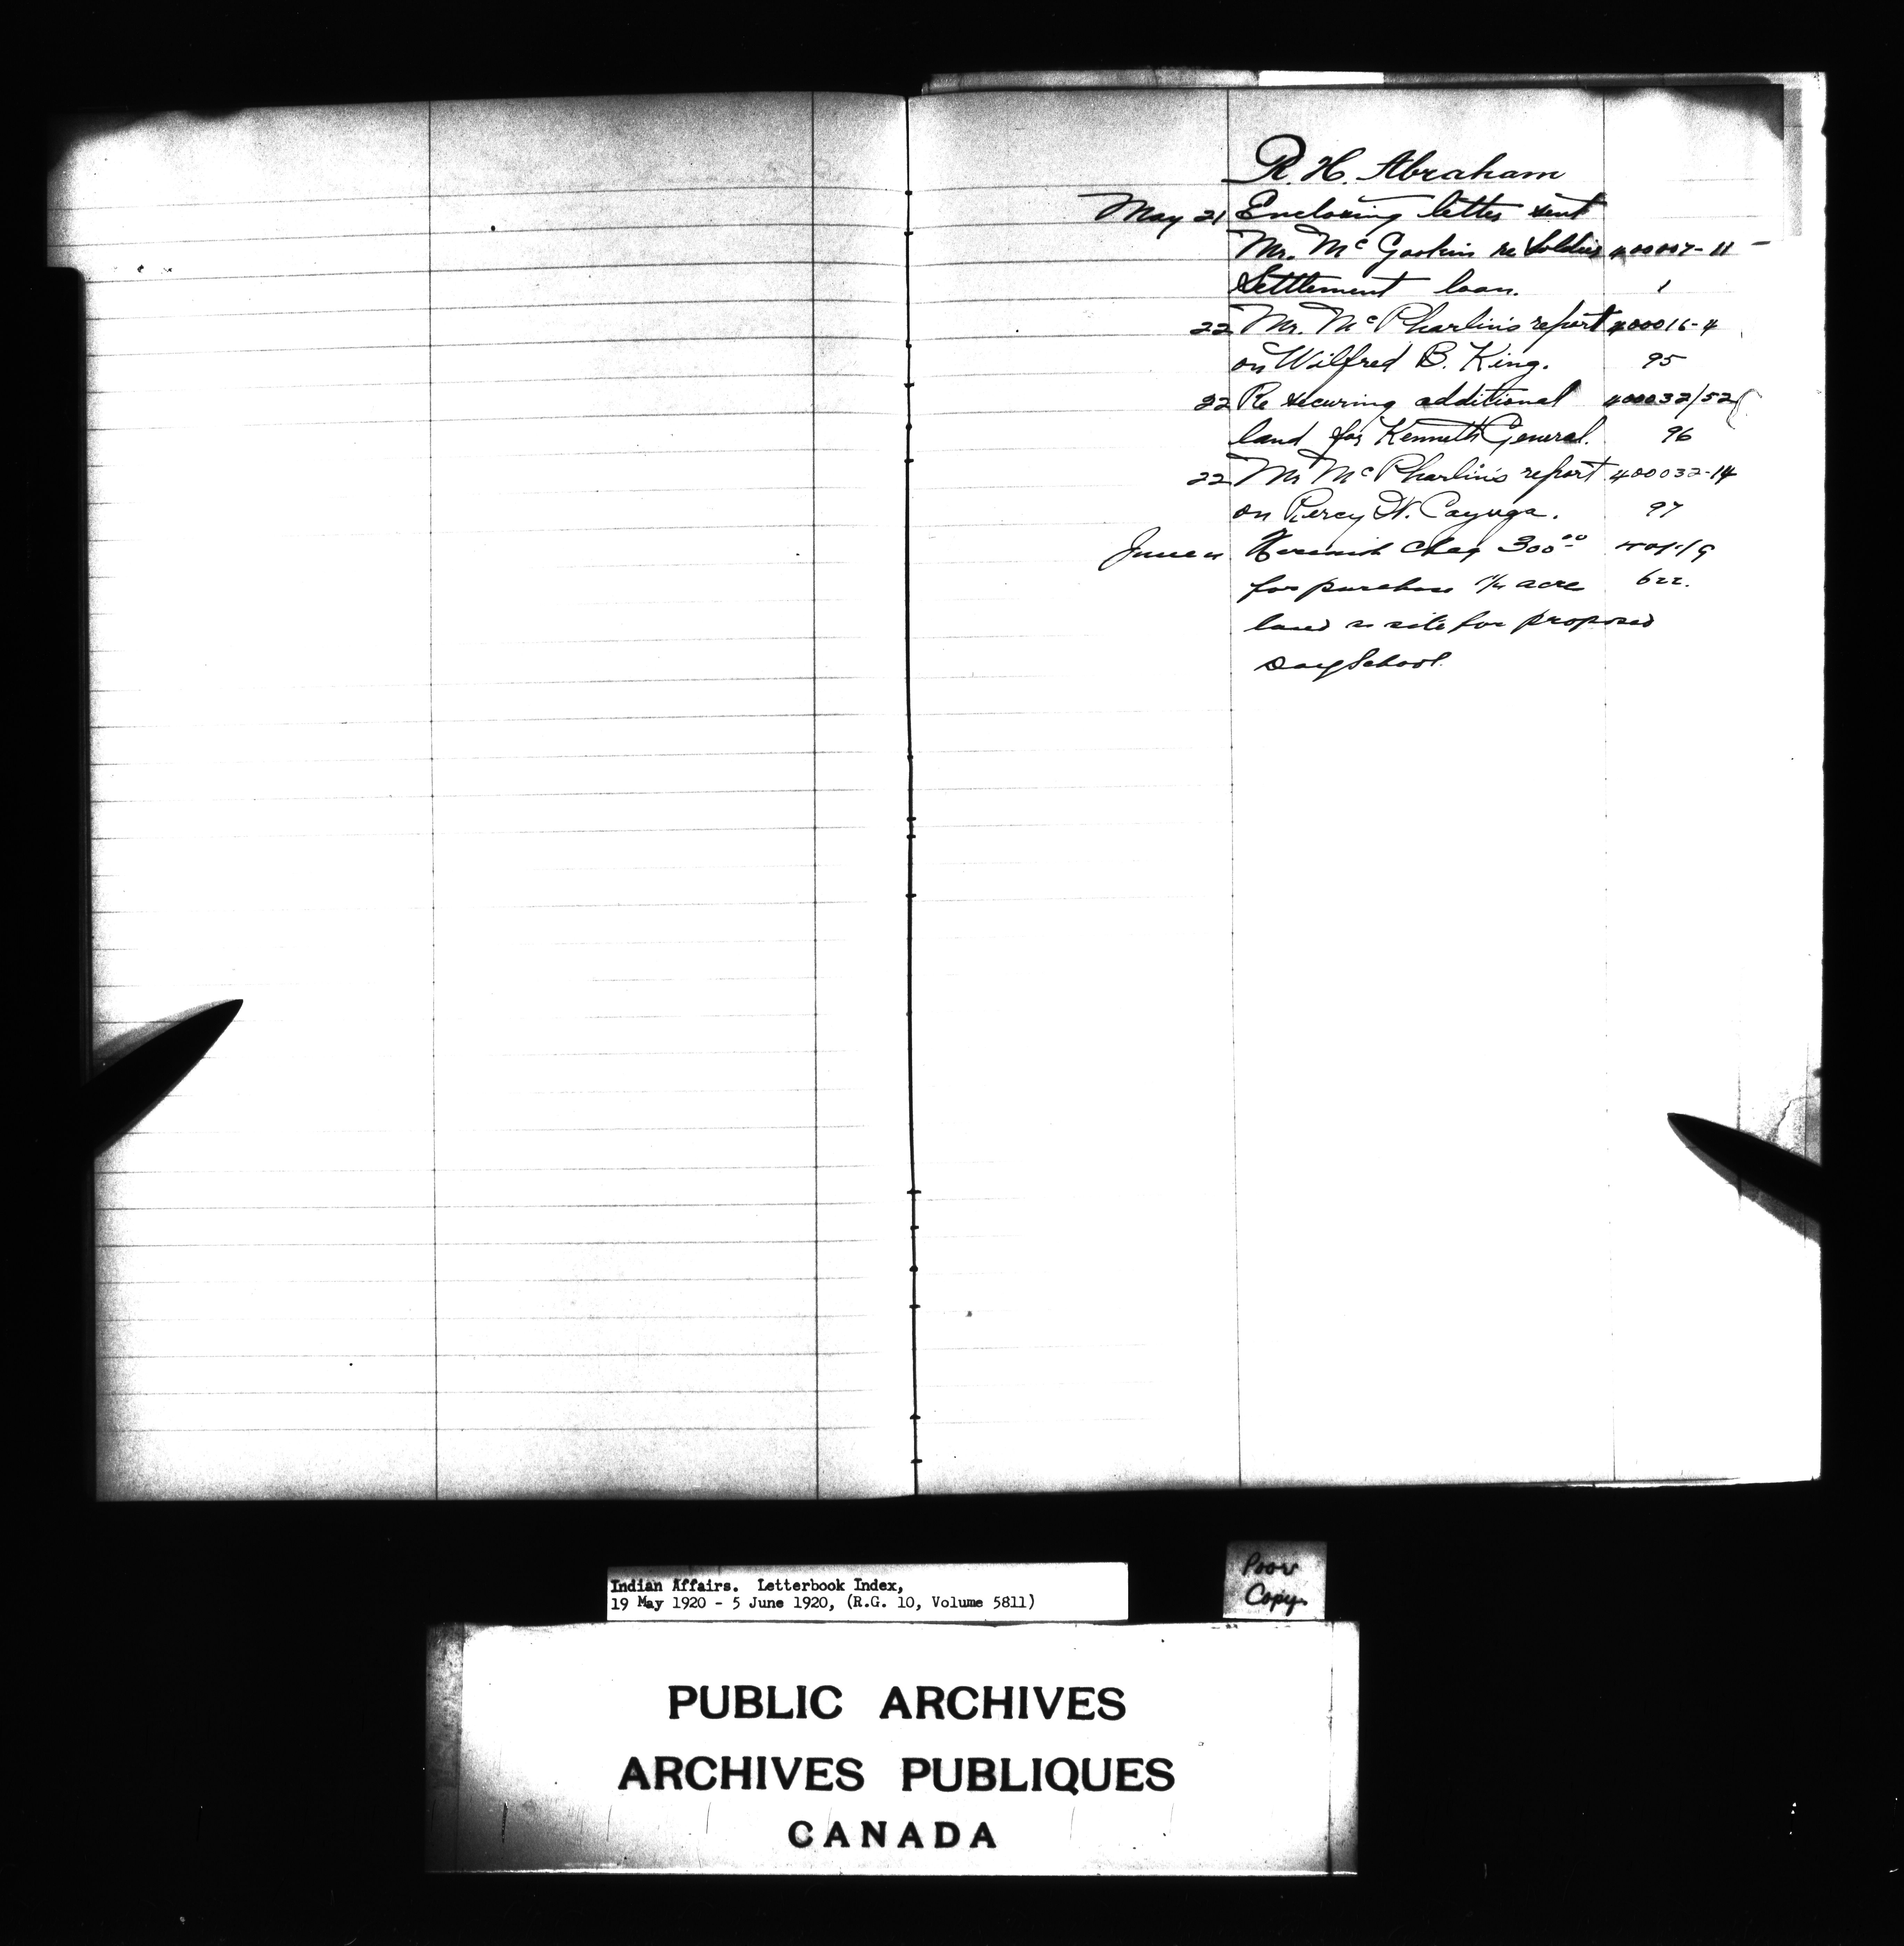 R. H. Abraham
May 21 Enclosing letter sent
Mr. Mc Gookin re Soldier 400007-11 -
Settlement loan. 1
22 Mr. McPharlin's report 400016-4
on Wilfred B. King. 95
22 Re securing additional 400032/52
land for Kenneth General. 96
22 Mr McPharlin's report 400032-14
on Percy W. Cayuga. 97
June Herewith Cheq 300.00
for purchase acre 622.
land as site for proposed
Day School.
Indian Affairs. Letterbook Index,
19 May 1920 - 5 June 1920, (R.G. 10, Volume 5811)
Poor
Copy
PUBLIC ARCHIVES
ARCHIVES PUBLIQUES
CANADA